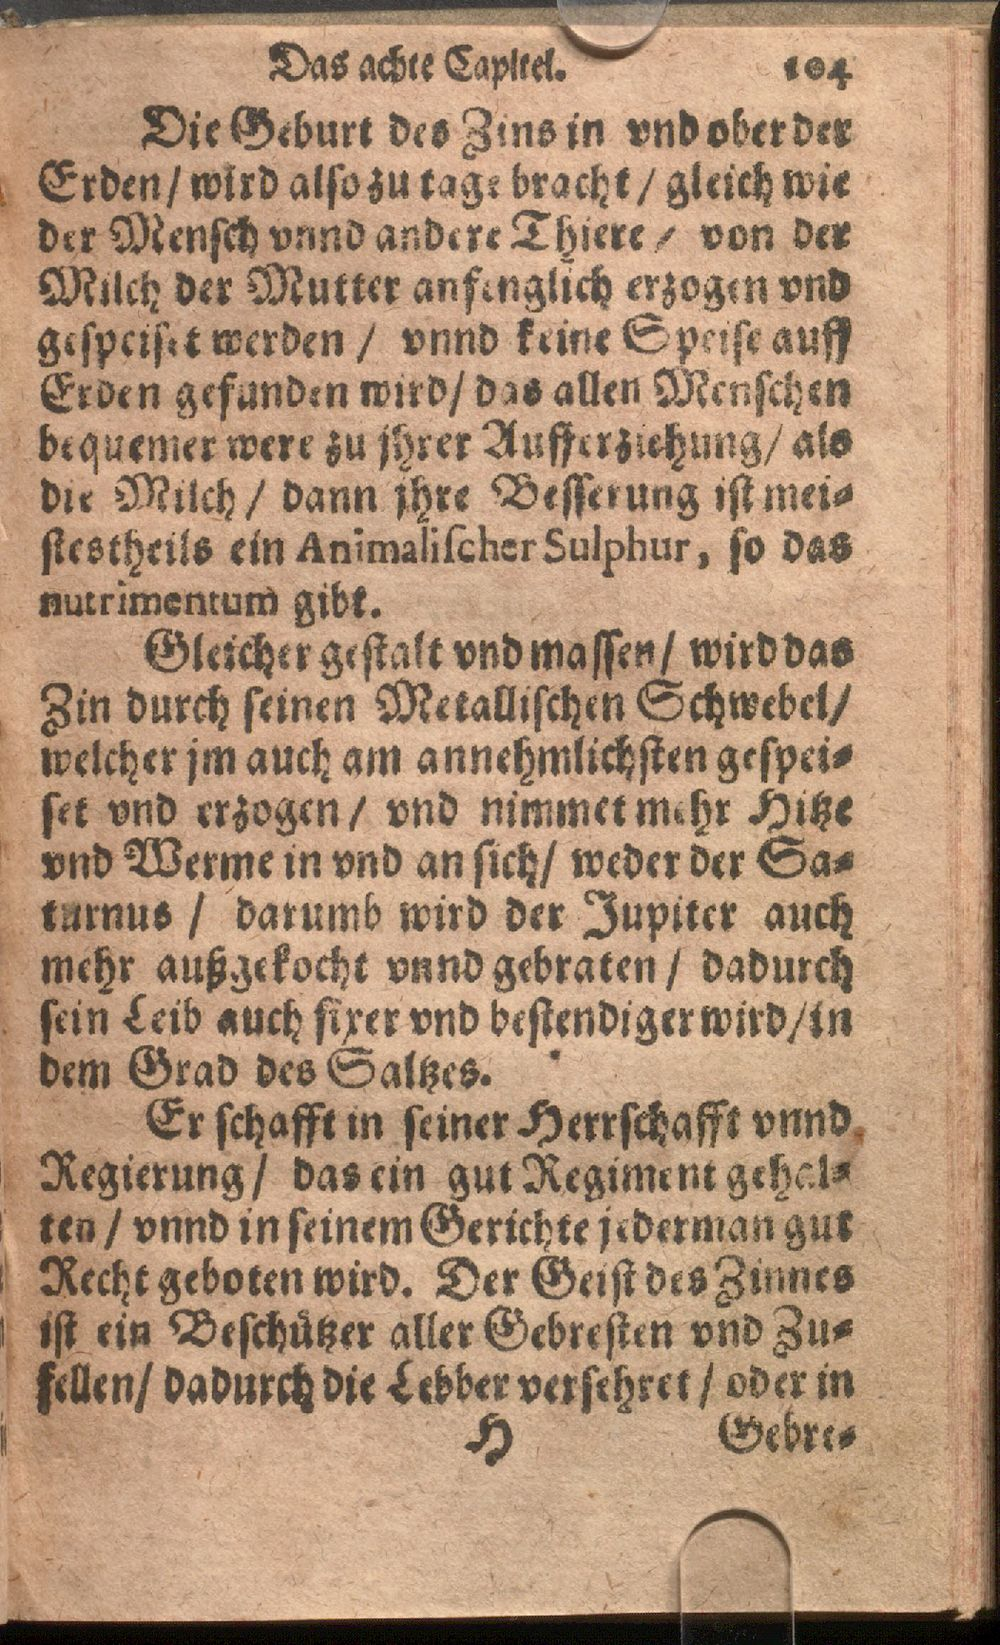 Das achte Capittel. 104
Die Geburt des Zins in vnd ober der
Erden / wird also zu tage bracht / gleich wie
der Mensch vnnd andere Thiere / von der
Milch der Mutter anfenglich erzogen vnd
gespeiset werden / vnnd keine Speise auff
Erden gefunden wird / das allen Menschen
bequemer were zu jhrer Aufferziehung / als
die Milch / dann jhre Besserung ist mei⸗
stestheils ein Animalischer Sulphur, so das
nutrimentum gibt.
Gleicher gestalt vnd massen / wird das
Zin durch seinen Metallischen Schwebel /
welcher jm auch am annehmlichsten gespei⸗
set vnd erzogen / vnd nimmet mehr Hitze
vnd Werme in vnd an sich / weder der Sa⸗
turnus / darumb wird der Jupiter auch
mehr außgekocht vnnd gebraten / dadurch
sein Leib auch fixer vnd bestendiger wird / in
dem Grad des Saltzes.
Er schafft in seiner Herrschafft vnnd
Regierung / das ein gut Regiment gehal⸗
ten / vnnd in seinem Gerichte jederman gut
Recht geboten wird. Der Geist des Zinnes
ist ein Beschützer aller Gebresten vnd Zu⸗
fellen / dadurch die Lebber versehret / oder in
H Gebre⸗